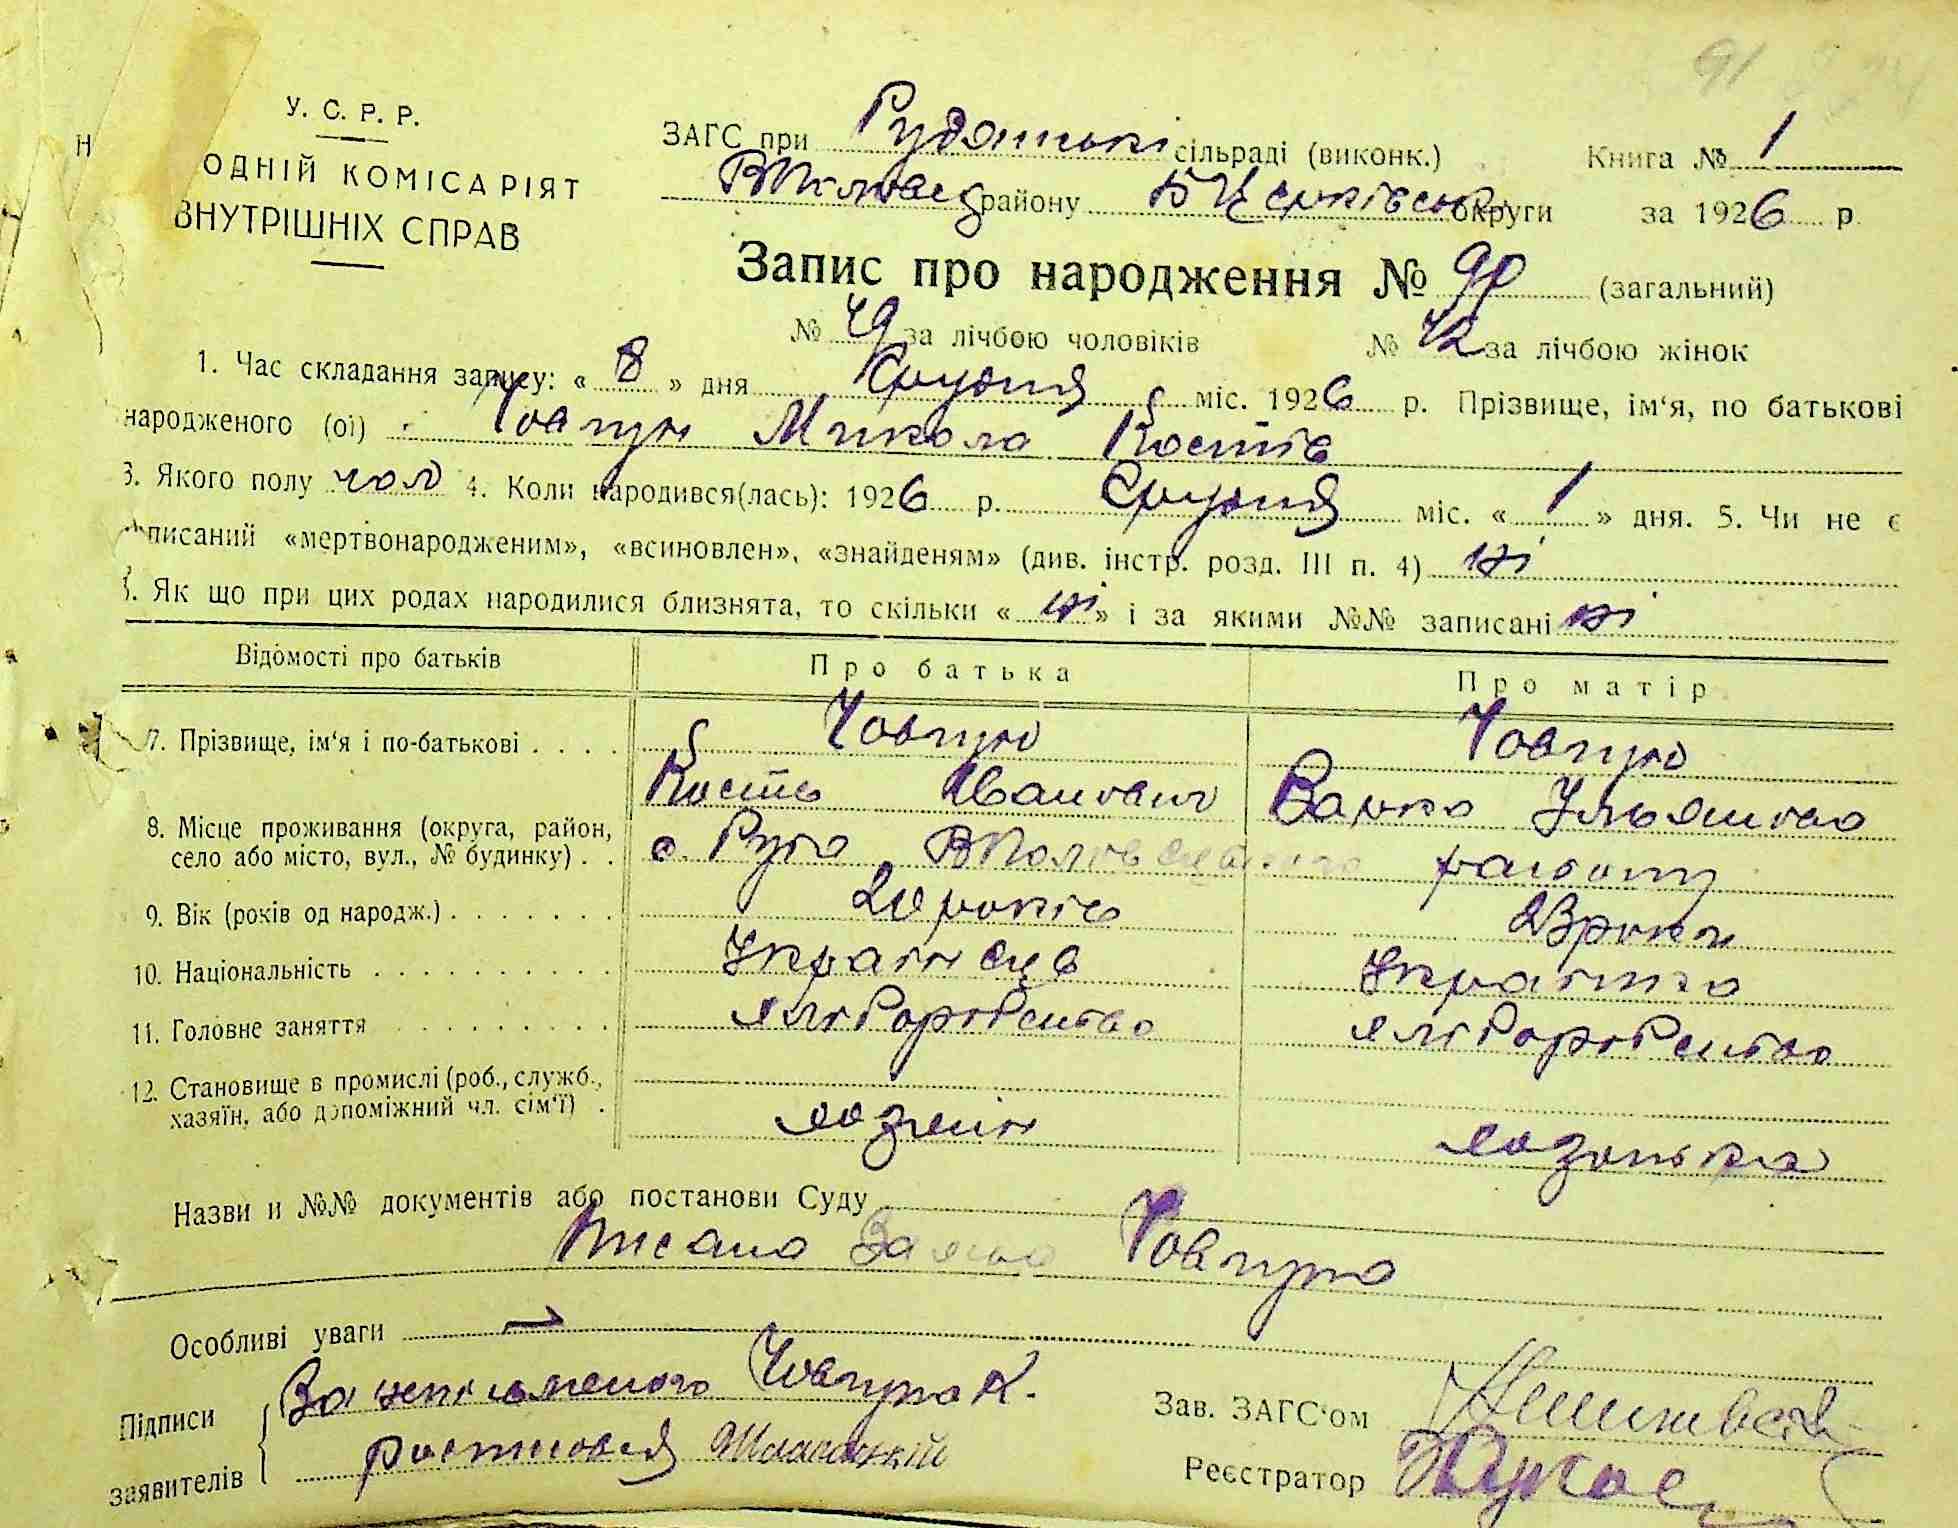 91
У. С. Р. Р.
Н
ОДНІЙ КОМІСАРІЯТ
ВНУТРІШНІХ СПРАВ
ЗАГС при Рудянські сільраді (виконк.) Книга № 1
району БЦерківськ округи за 1926 р.
Запис про народження № 90 (загальний)
№ 49 за лічбою чоловіків № 42 за лічбою жінок
1. Час складання запису: « 8 » дня Грудня міс. 1926 р. Прізвище, ім‘я, по батькові
народженого (ої) Човгун Микола Костів
3. Якого полу чол 4. Коли народився(лась): 1926 р. Грудня міс. « 1 » дня. 5. Чи не є
писаний «мертвонародженим», «всиновлен», «знайденям» (див. інстр. розд. III п. 4) ні
Як що при цих родах народилися близнята, то скільки « ні » і за якими №№ записані ні
Відомості про батьків Про батька Про матір
7. Прізвище, ім‘я і по-батькові . . . . Човгун Човгун
Кость Іванович Варка Ульянова
8. Місце проживання (округа, район,
село або місто, вул., № будинку) . . с. Руда ВПоловецького району
9. Вік (років од народж.) . . . . . . . 20 років 23 роки
10. Національність . . . . . . . . . . Українець Українка
11. Головне заняття . . . . . . . . . хліборобство хліборобство
12. Становище в промислі (роб., служб.,
хазяїн, або допоміжний чл. сім‘ї) . хазяїн хазяйка
Назви и №№ документів або постанови Суду
Човгуна
Особливі уваги —
Підписи За неписьменого Човгуна К.
заявителів ростисався
Зав. ЗАГС‘ом
Реєстратор